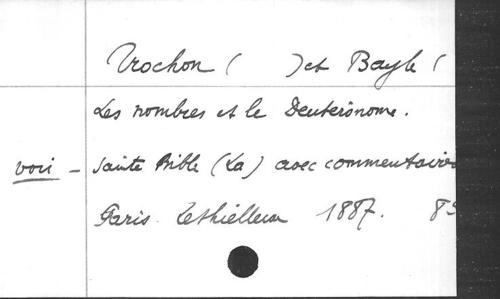 Trochon (      ) et Bayle (
Les nombres et le Deutéronome.
voir - Sainte Bible (La) avec commentaires
Paris Lethielleux 1887. 8°